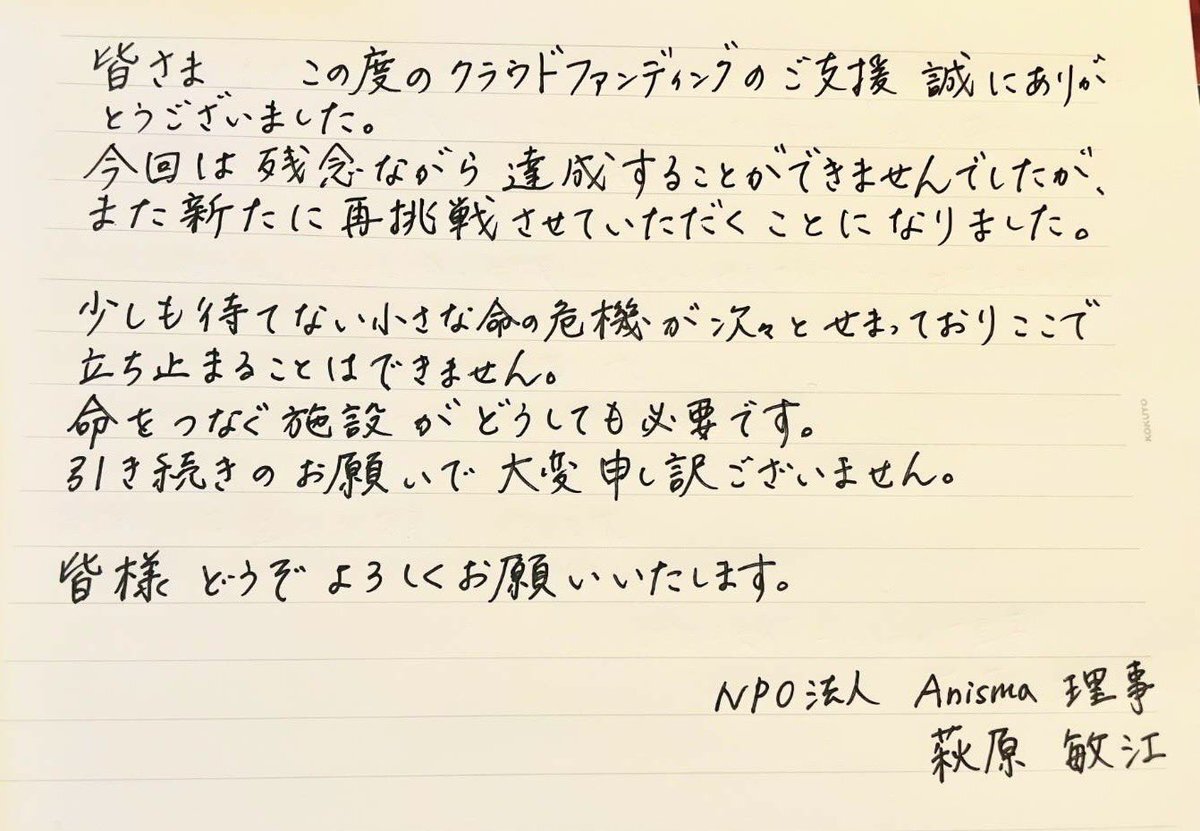 皆さま　この度のクラウドファンディングのご支援 誠にありが
とうございました。
今回は残念ながら達成することができませんでしたが、
また新たに再挑戦させていただくことになりました。
少しも待てない小さな命の危機が次々とせまっておりここで
立ち止まることはできません。
命をつなぐ施設がどうしても必要です。
引き続きのお願いで大変申し訳ございません。
皆様 どうぞよろしくお願いいたします。
NPO法人 Anisma 理事
萩原 敏江
KOKUYO